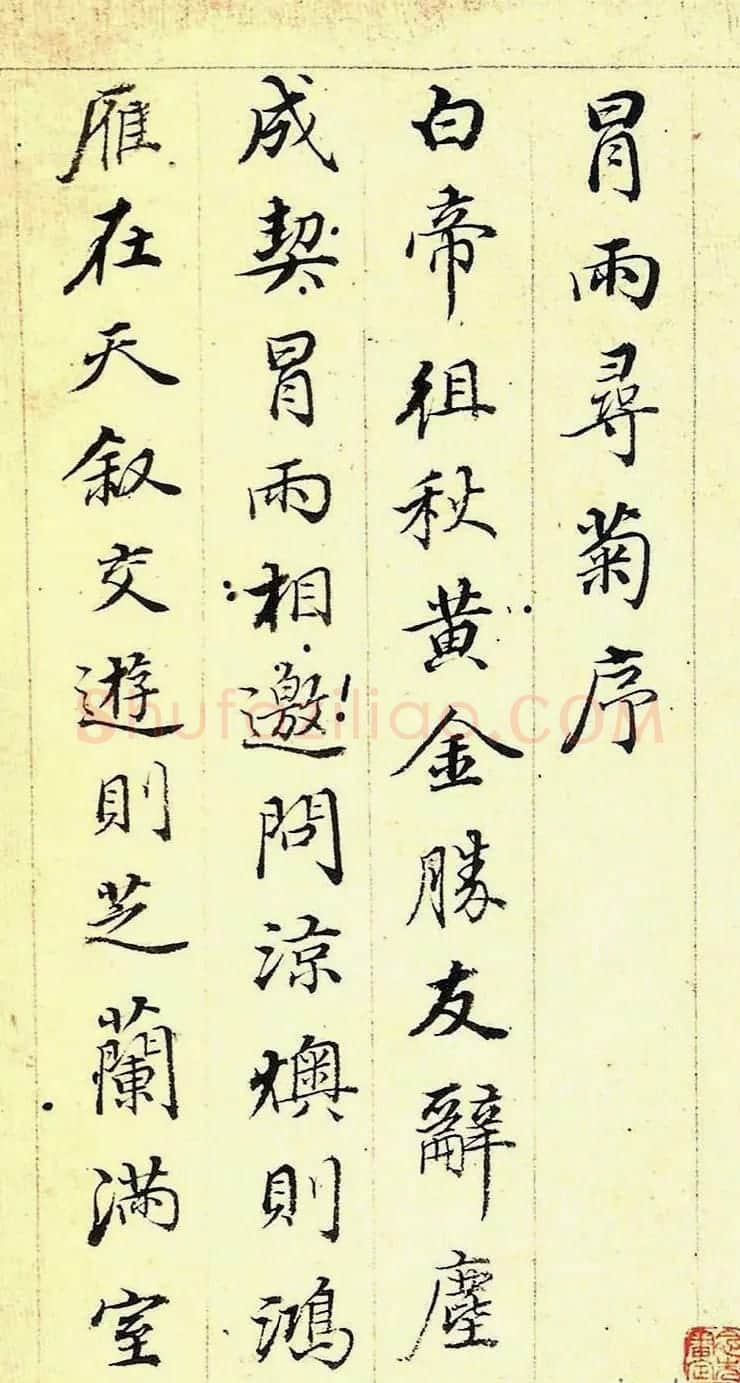 冒雨尋菊序
白帝徂秋黄金勝友辭塵
成契冒雨相邀問涼燠則鴻
雁在天叙交遊則芝蘭滿室
Shufaziliao.COM